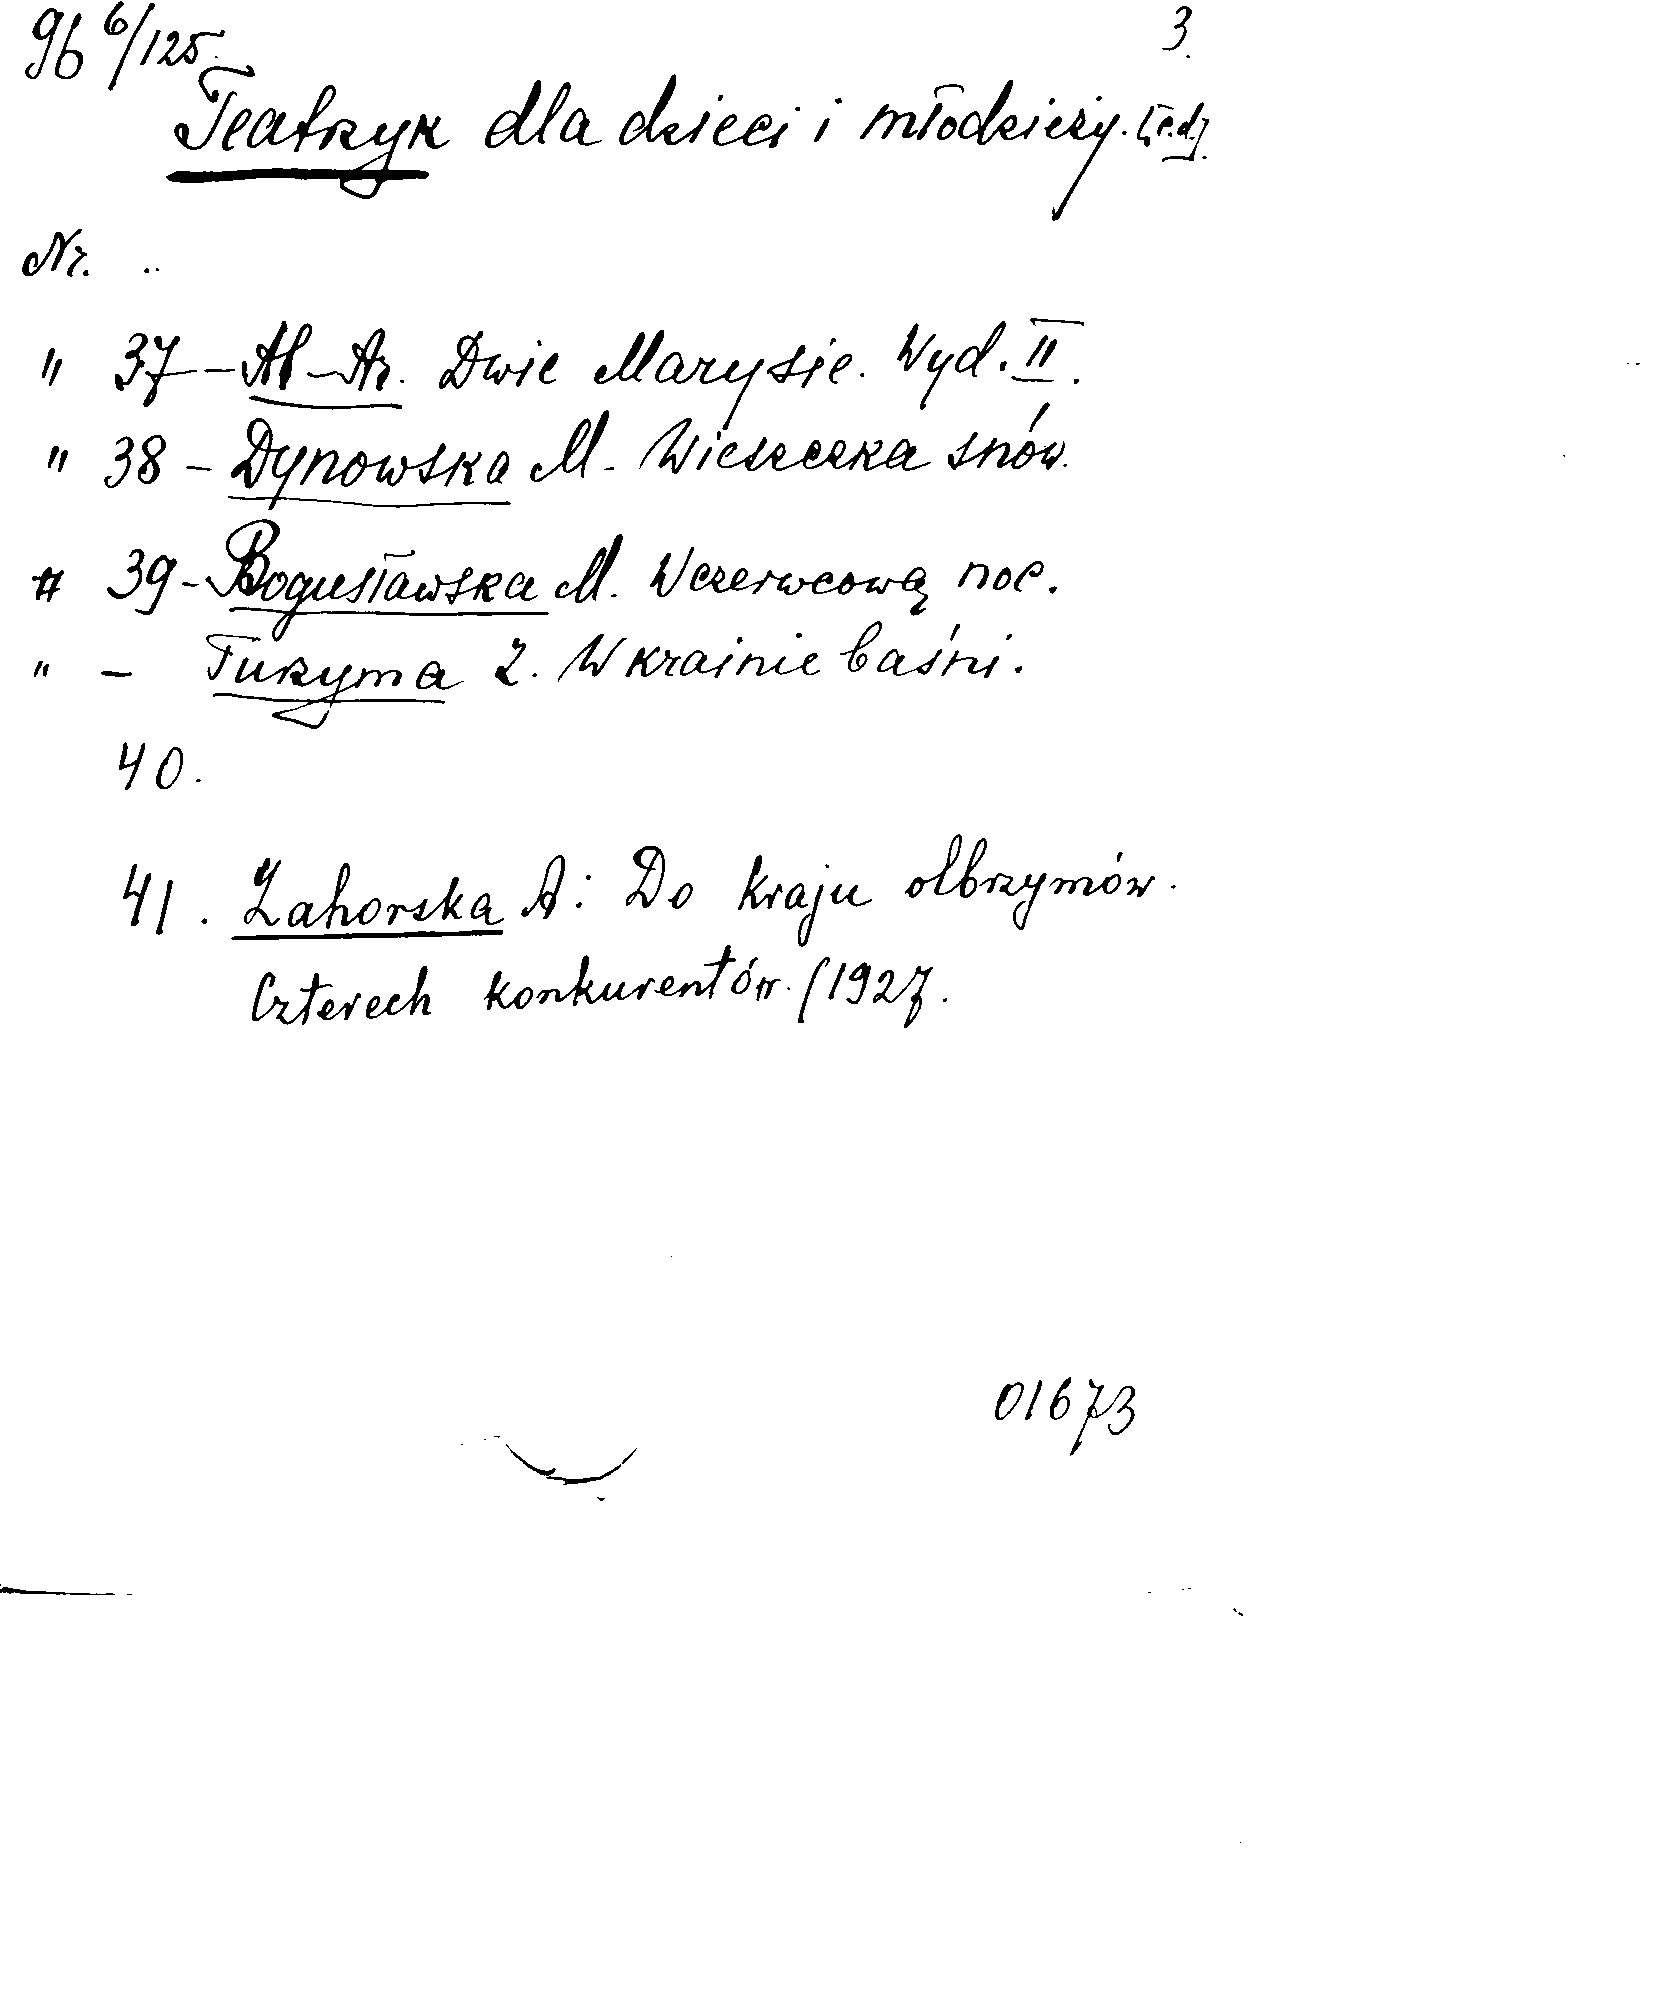 96 6/125. 3.
Teatrzyk dla dzieci i młodzieży. [c.d.]
Nr. ..
" 37 – Al–Ar. Dwie Marysie. Wyd. II.
" 38 – Dynowska M. Wieszczka snów.
" 39 – Bogusławska M. W czerwcową noc.
" – Turzyma Z. W krainie baśni.
40.
41. Zahorska A: Do kraju olbrzymów.
Czterech konkurentów. (1927.
01673